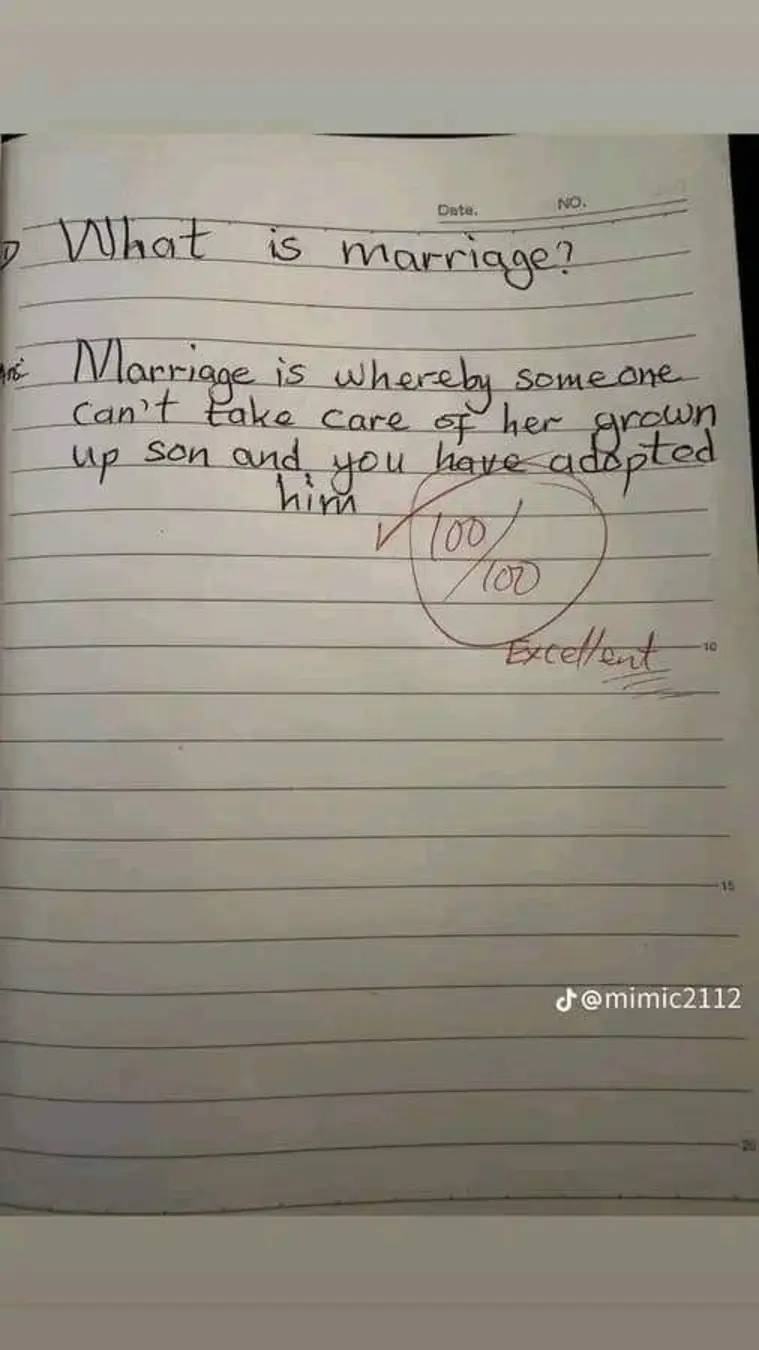 Date. NO.
1) What is marriage?
Ans: Marriage is whereby someone
can't take care of her grown
up son and you have adopted
him
100/100
Excellent
10
15
@mimic2112
20